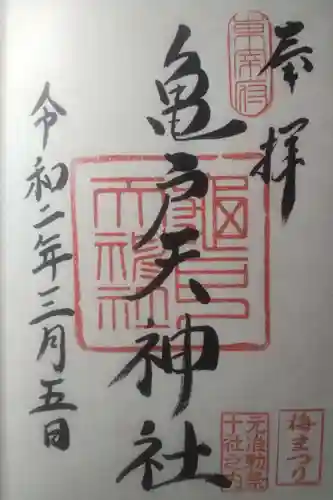 奉拝
東宰府
亀戸天神社
亀戸天神社
令和二年三月五日
元准勅祭
十社之内
梅まつり